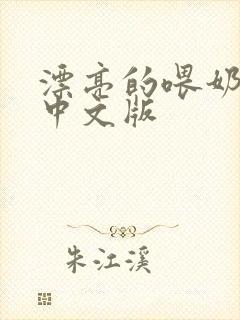 漂亮的喂奶
中文版
朱江溪